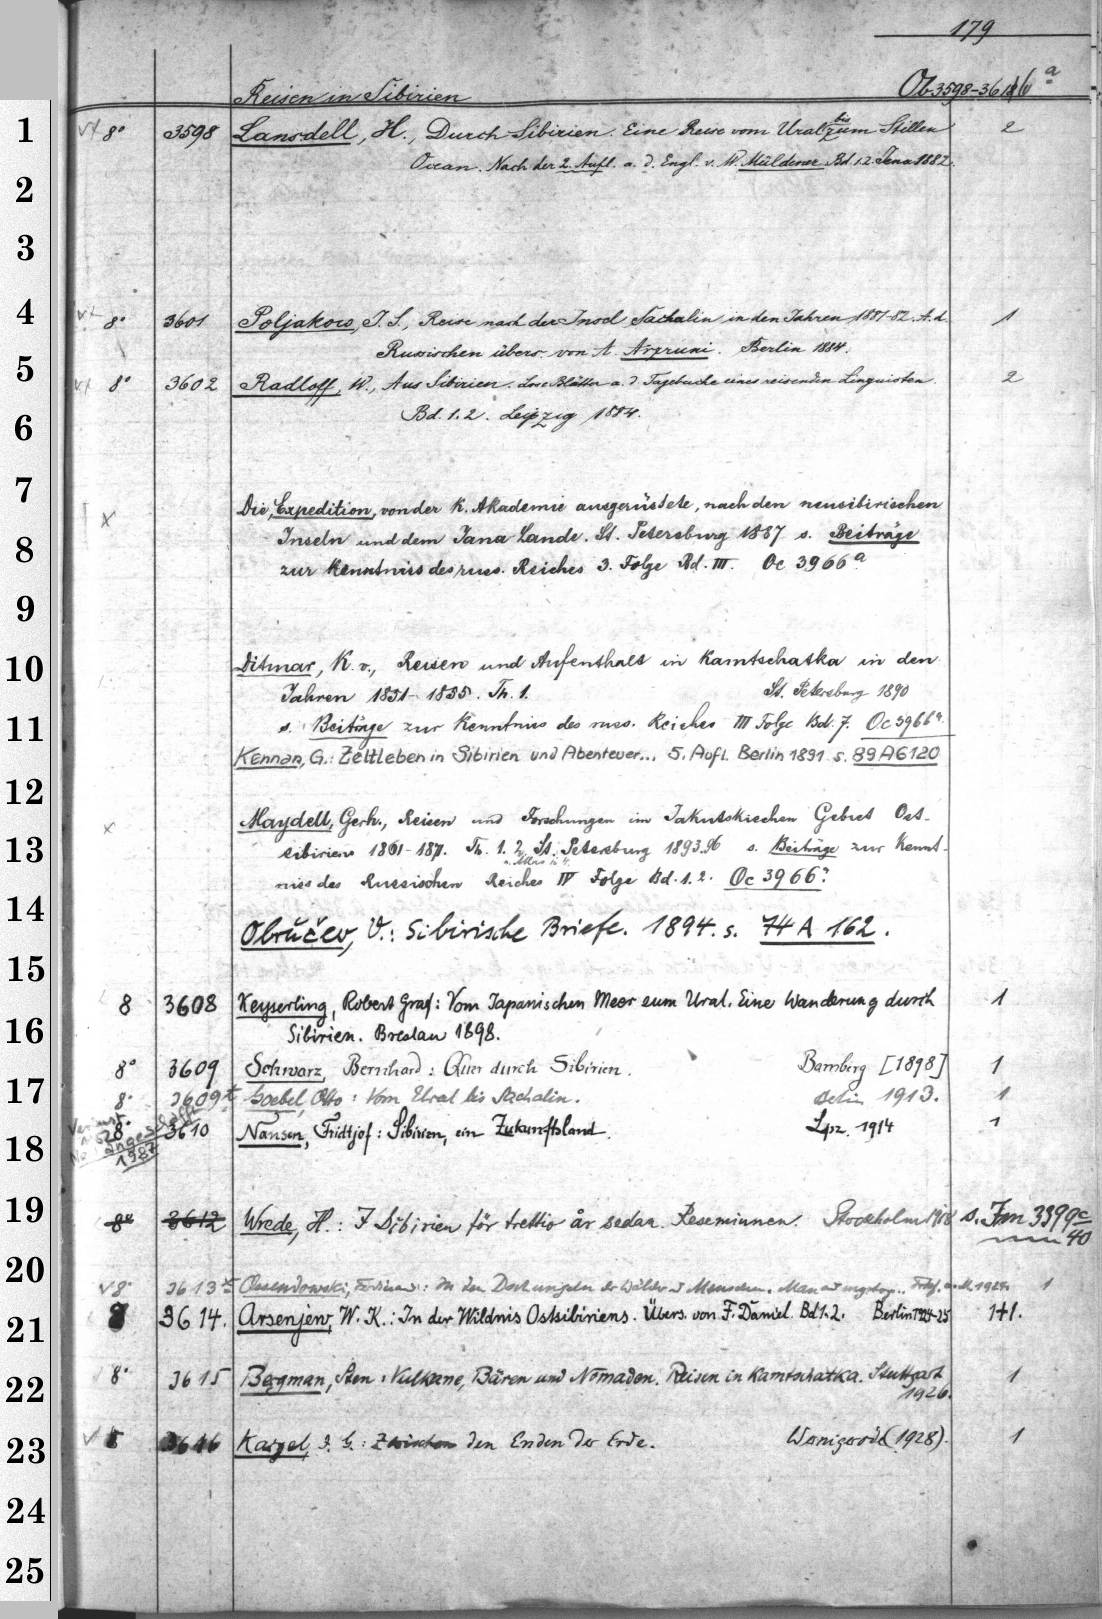 179
Reisen in Sibirien Ob 3598-3616 a
1 8° 3598 Lansdell, H., Durch Sibirien. Eine Reise vom Ural bis zum Stillen 2
Ocean. Nach der 2. Aufl. a. d. Engl. v. W. Müldener. Bd. 1.2. Jena 1882.
2
3
4 8° 3601 Poljakow, I. S., Reise nach der Insel Sachalin in den Jahren 1881-82. A. d. 1
Russischen übers. von A. Arzruni. Berlin 1884.
5 8° 3602 Radloff, W., Aus Sibirien. Lose Blätter a. d. Tagebuche eines reisenden Linguisten. 2
6 Bd. 1. 2. Leipzig 1884.
7 x Die Expedition, von der K. Akademie ausgerüstete, nach den neusibirischen
8 Inseln und dem Jana Lande. St. Petersburg 1887 s. Beiträge
zur Kenntniss des russ. Reiches 3. Folge Bd. III. Oc 3966 a.
9
10 Ditmar, K. v., Reisen und Aufenthalt in Kamtschatka in den
Jahren 1851-1855. Th. 1. St. Petersburg 1890
11 s. Beiträge zur Kenntniss des russ. Reiches III Folge Bd. 7. Oc 3966 a.
Kennan, G.: Zeltleben in Sibirien und Abenteuer... 5. Aufl. Berlin 1891 s. 89 A 6120
12 x Maydell, Gerh., Reisen und Forschungen im Jakutskischen Gebiet Ost-
13 sibiriens 1861-1871. Th. 1. 2. St. Petersburg 1893.96 s. Beiträge zur Kennt-
niss des Russischen Reiches IV Folge Bd. 1. 2. Oc 3966 a.
14 Obručev, V.: Sibirische Briefe. 1894. s. 74 A 162.
15 8 3608 Keyserling, Robert Graf: Vom Japanischen Meer zum Ural. Eine Wanderung durch 1
16 Sibirien. Breslau 1898.
8° 3609 Schwarz, Bernhard: Quer durch Sibirien. Bamberg [1898] 1
17 8° 3609 Goebel, Otto: Vom Ural bis Sachalin. Berlin 1913. 1
18 8° 3610 Nansen, Fridtjof: Sibirien, ein Zukunftsland. Lpz. 1914 1
angeschafft 1987
19 8° 3612 Wrede, H.: I Sibirien för trettio år sedan. Reseminnen. Stockholm 1918 s.
40
20 8° 3613 Ossendowski, Ferdinand: In den Dschungeln der Wälder u. Menschen. 1924. 1
21 8 3614. Arsenjew, W. K.: In der Wildnis Ostsibiriens. Übers. von F. Daniel. Bd 1. 2. Berlin 1924-25 1+1.
22 8° 3615 Bergman, Sten: Vulkane, Bären und Nomaden. Reisen in Kamtschatka. Stuttgart 1
1926.
23 3616 Kargel, I. G.: Zwischen den Enden der Erde. Wernigerode (1928). 1
24
25